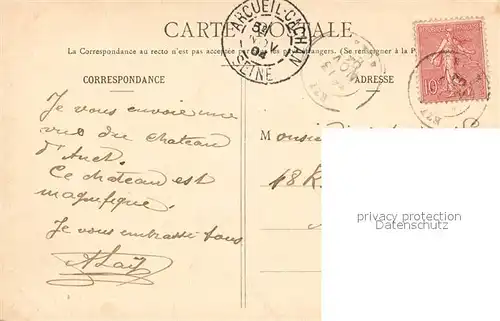 CARTE POSTALE
La Correspondance au recto n'est pas acceptée par
(Se renseigner à la P
CORRESPONDANCE
ADRESSE
ARCUEIL-CACHAN
04
SEINE
10
Je vous envoie une
vue du chateau
d'Anet.
Ce chateau est
magnifique.
Je vous embrasse tous
M
Monsieur
48 R
privacy protection
Datenschutz